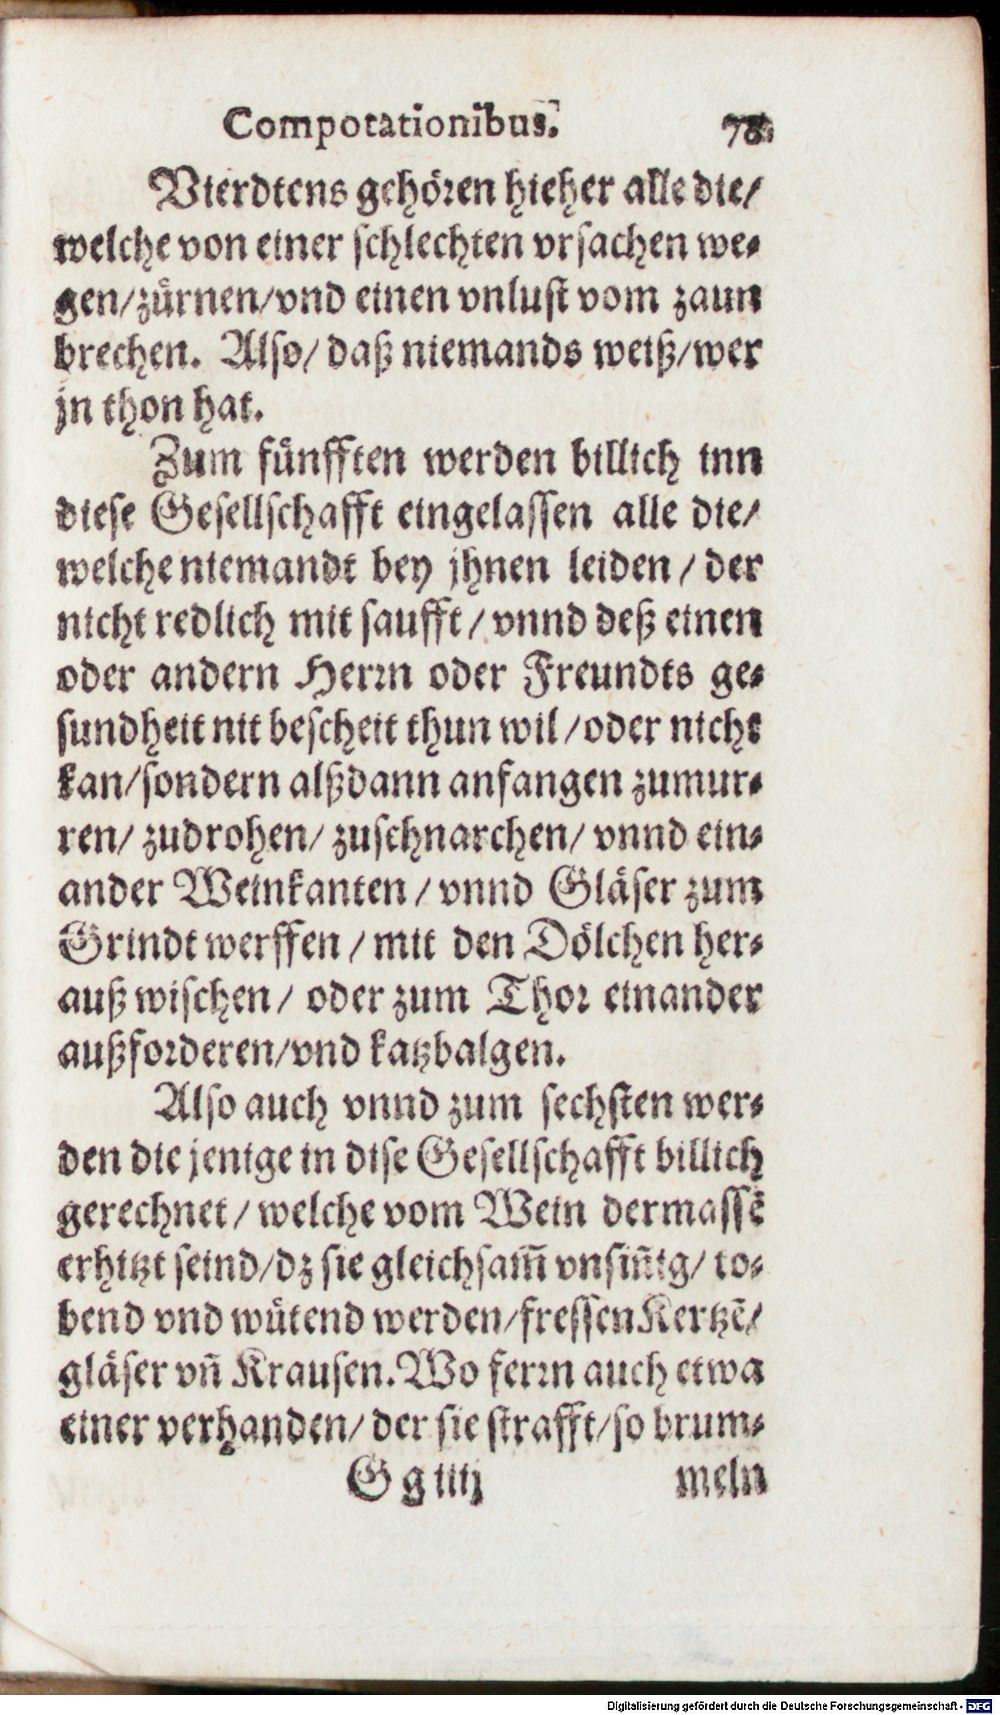 Compotationibus. 78.
Vierdtens gehören hieher alle die/
welche von einer schlechten vrsachen we-
gen/zürnen/vnd einen vnlust vom zaun
brechen. Also/ daß niemands weiß/wer
jn thon hat.
Zum fünfften werden billich inn
diese Gesellschafft eingelassen alle die/
welche niemandt bey jhnen leiden / der
nicht redlich mit saufft / vnnd deß einen
oder andern Herrn oder Freundts ge-
sundheit nit bescheit thun wil /oder nicht
kan/sondern alßdann anfangen zumur-
ren/ zudrohen/ zuschnarchen/ vnnd ein-
ander Weinkanten / vnnd Gläser zum
Grindt werffen / mit den Dölchen her-
auß wischen/ oder zum Thor einander
außforderen/vnd katzbalgen.
Also auch vnnd zum sechsten wer-
den die jenige in dise Gesellschafft billich
gerechnet / welche vom Wein dermassẽ
erhitzt seind/dz sie gleichsam̃ vnsiñig/ to-
bend vnd wütend werden/fressen Kertzẽ/
gläser vñ Krausen. Wo ferrn auch etwa
einer verhanden/ der sie strafft/so brum-
G g iiij meln
Digitalisierung gefördert durch die Deutsche Forschungsgemeinschaft - DFG